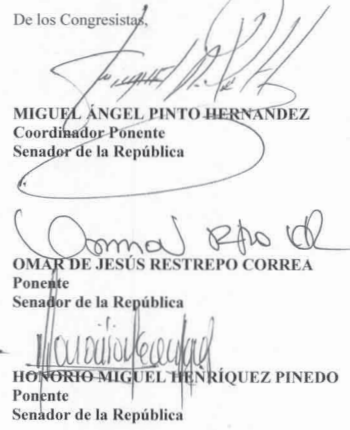 De los Congresistas,
MIGUEL ÁNGEL PINTO HERNANDEZ
Coordinador Ponente
Senador de la República
OMAR DE JESÚS RESTREPO CORREA
Ponente
Senador de la República
HONORIO MIGUEL HENRÍQUEZ PINEDO
Ponente
Senador de la República